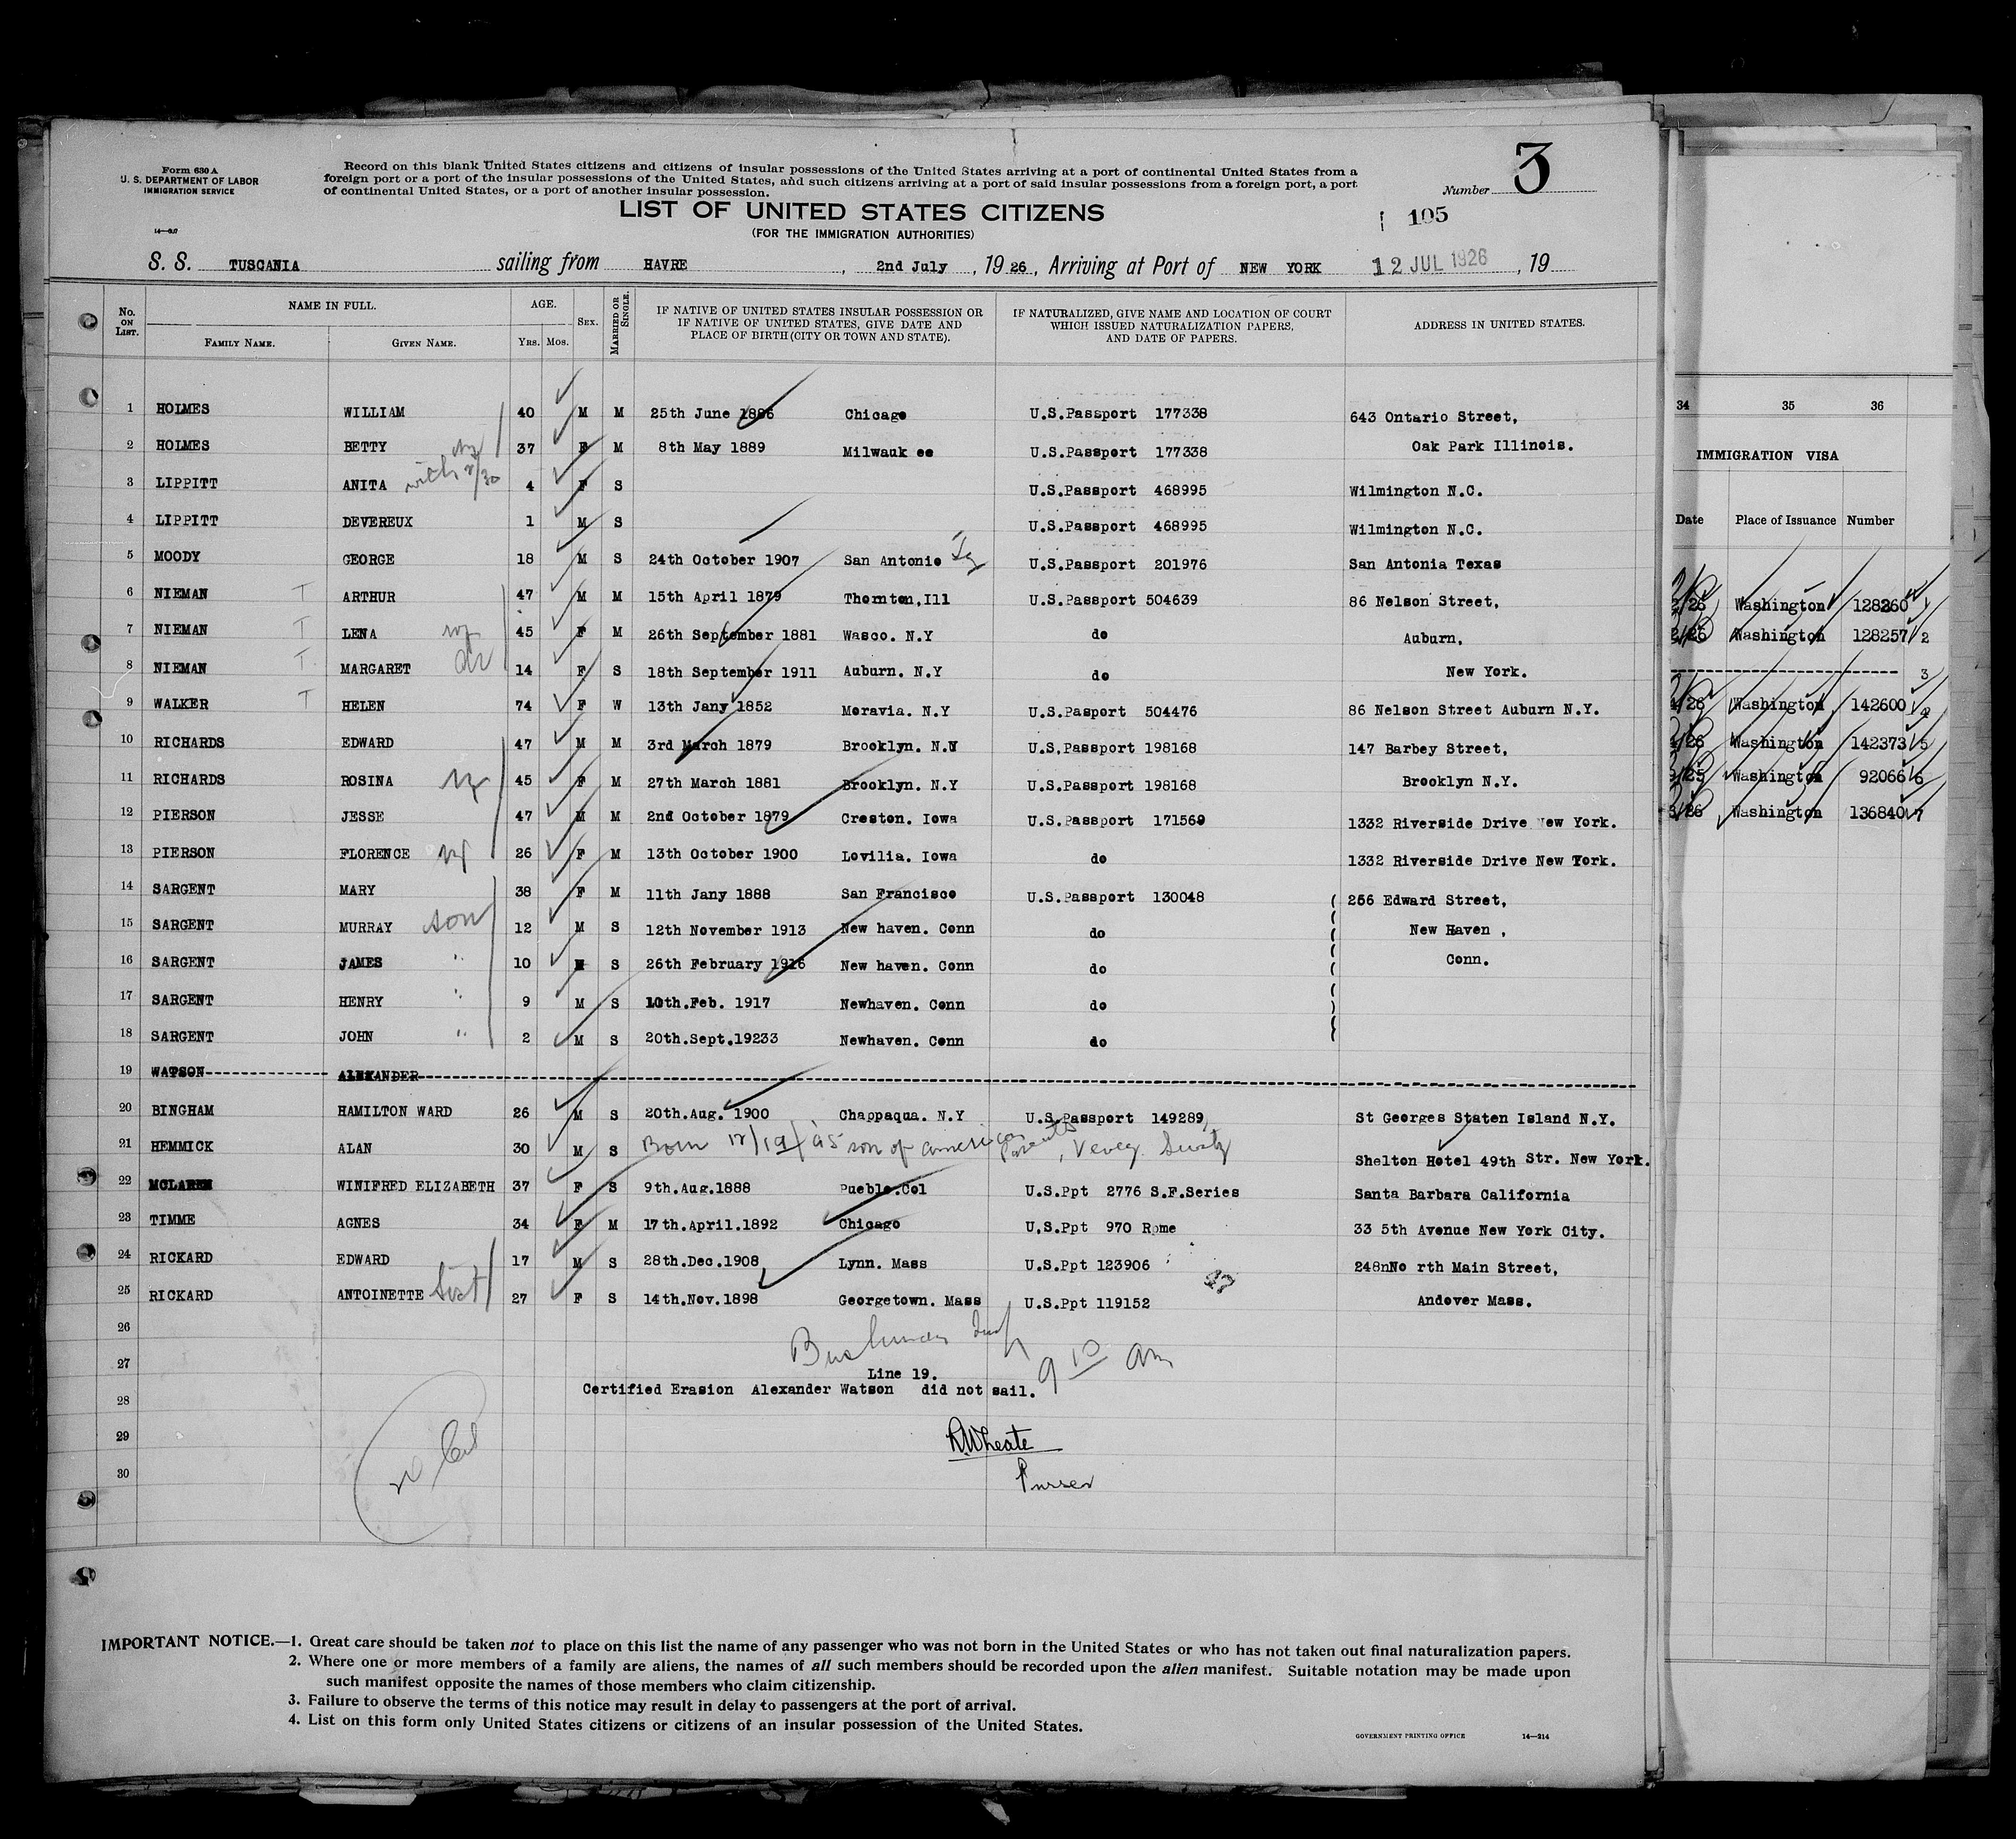 Form 630 A
U. S. DEPARTMENT OF LABOR
IMMIGRATION SERVICE
Record on this blank United States citizens and citizens of insular possessions of the United States arriving at a port of continental United States from a
foreign port or a port of the insular possessions of the United States, and such citizens arriving at a port of said insular possessions from a foreign port, a port
of continental United States, or a port of another insular possession.
Number 3
LIST OF UNITED STATES CITIZENS
(FOR THE IMMIGRATION AUTHORITIES)
105
S. S. TUSCANIA sailing from HAVRE , 2nd July , 19 26 , Arriving at Port of NEW YORK 12 JUL 1926 , 19
No. ON LIST. NAME IN FULL. AGE. SEX. MARRIED OR SINGLE. IF NATIVE OF UNITED STATES INSULAR POSSESSION OR IF NATIVE OF UNITED STATES, GIVE DATE AND PLACE OF BIRTH (CITY OR TOWN AND STATE). IF NATURALIZED, GIVE NAME AND LOCATION OF COURT WHICH ISSUED NATURALIZATION PAPERS, AND DATE OF PAPERS. ADDRESS IN UNITED STATES.
FAMILY NAME. GIVEN NAME. YRS. MOS.
1 HOLMES WILLIAM 40 M M 25th June 1886 Chicago U.S.Passport 177338 643 Ontario Street,
2 HOLMES BETTY 37 F M 8th May 1889 Milwauk ee U.S.Passport 177338 Oak Park Illinois.
3 LIPPITT ANITA with 2/30 4 F S U.S.Passport 468995 Wilmington N.C.
4 LIPPITT DEVEREUX 1 M S U.S.Passport 468995 Wilmington N.C.
5 MOODY GEORGE 18 M S 24th October 1907 San Antonio U.S.Passport 201976 San Antonia Texas
6 NIEMAN T ARTHUR 47 M M 15th April 1879 Thornton,Ill U.S.Passport 504639 86 Nelson Street,
7 NIEMAN T LENA 45 F M 26th September 1881 Wasco. N.Y do Auburn.
8 NIEMAN T MARGARET 14 F S 18th September 1911 Auburn. N.Y do New York.
9 WALKER T HELEN 74 F W 13th Jany 1852 Moravia. N.Y U.S.Pasport 504476 86 Nelson Street Auburn N.Y.
10 RICHARDS EDWARD 47 M M 3rd March 1879 Brooklyn. N.Y U.S.Passport 198168 147 Barbey Street,
11 RICHARDS ROSINA 45 F M 27th March 1881 Brooklyn. N.Y U.S.Passport 198168 Brooklyn N.Y.
12 PIERSON JESSE 47 M M 2nd October 1879 Creston. Iowa U.S.Passport 171569 1332 Riverside Drive New York.
13 PIERSON FLORENCE 26 F M 13th October 1900 Lovilia. Iowa do 1332 Riverside Drive New York.
14 SARGENT MARY 38 F M 11th Jany 1888 San Francisco U.S.Passport 130048 256 Edward Street,
15 SARGENT MURRAY son 12 M S 12th November 1913 New haven. Conn do New Haven ,
16 SARGENT JAMES " 10 M S 26th February 1916 New haven. Conn do Conn.
17 SARGENT HENRY " 9 M S 10th.Feb. 1917 Newhaven. Conn do
18 SARGENT JOHN " 2 M S 20th.Sept.19233 Newhaven. Conn do
19 WATSON ALEXANDER
20 BINGHAM HAMILTON WARD 26 M S 20th.Aug. 1900 Chappaqua. N.Y U.S.Passport 149289 St Georges Staten Island N.Y.
21 HEMMICK ALAN 30 M S Born 12/19/95 son of american Parents, Vevey Switz Shelton Hotel 49th Str. New York.
22 MCLAREN WINIFRED ELIZABETH 37 F S 9th.Aug.1888 Pueblo.Col U.S.Ppt 2776 S.F.Series Santa Barbara California
23 TIMME AGNES 34 F M 17th.April.1892 Chicago U.S.Ppt 970 Rome 33 5th Avenue New York City.
24 RICKARD EDWARD 17 M S 28th.Dec.1908 Lynn. Mass U.S.Ppt 123906 248nNo rth Main Street,
25 RICKARD ANTOINETTE Sist 27 F S 14th.Nov.1898 Georgetown. Mass U.S.Ppt 119152 Andover Mass.
26
27
9 10 am
Line 19.
Certified Erasion Alexander Watson did not sail.
28
29
30
Purser
IMPORTANT NOTICE.—1. Great care should be taken not to place on this list the name of any passenger who was not born in the United States or who has not taken out final naturalization papers.
2. Where one or more members of a family are aliens, the names of all such members should be recorded upon the alien manifest. Suitable notation may be made upon
such manifest opposite the names of those members who claim citizenship.
3. Failure to observe the terms of this notice may result in delay to passengers at the port of arrival.
4. List on this form only United States citizens or citizens of an insular possession of the United States.
GOVERNMENT PRINTING OFFICE 14—214
34 35 36
IMMIGRATION VISA
Date Place of Issuance Number
2/26 Washington 128260 1
2/26 Washington 128257 2
3
Washington 142600 4
Washington 142373 5
Washington 92066 6
3/26 Washington 136840 7